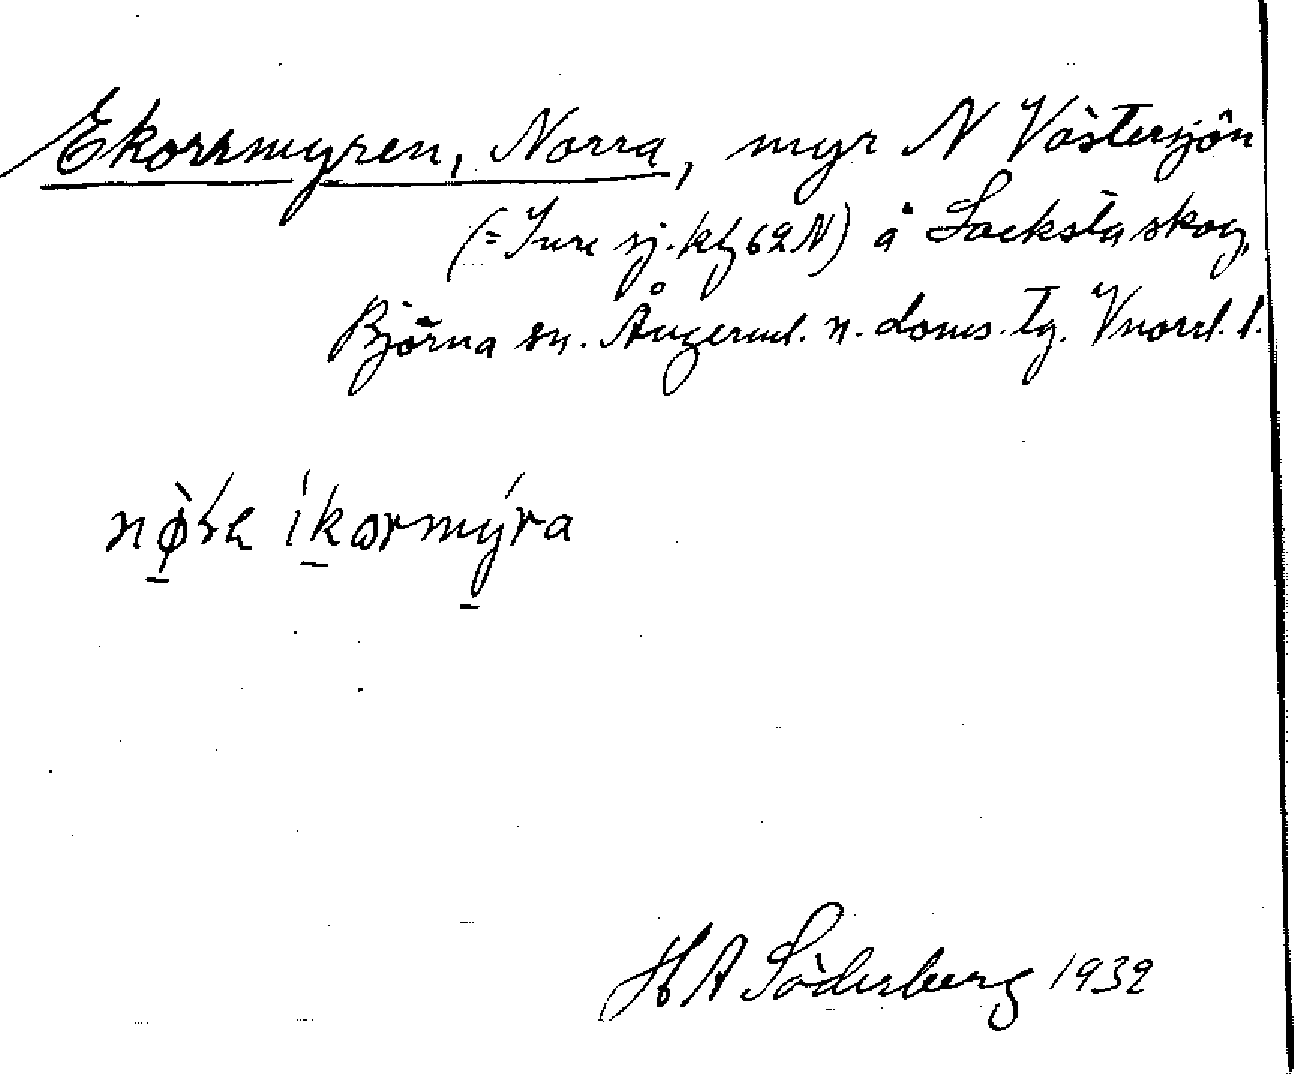 Ekorrmyren, Norra, myr N Västersjön
(= Inre sj. kbl 62 N) å Locksta skog,
Björna sn. Ångerml. n. doms. tg. Vnorrl. l.
nø̀ra íkormýra
H A Söderberg 1932